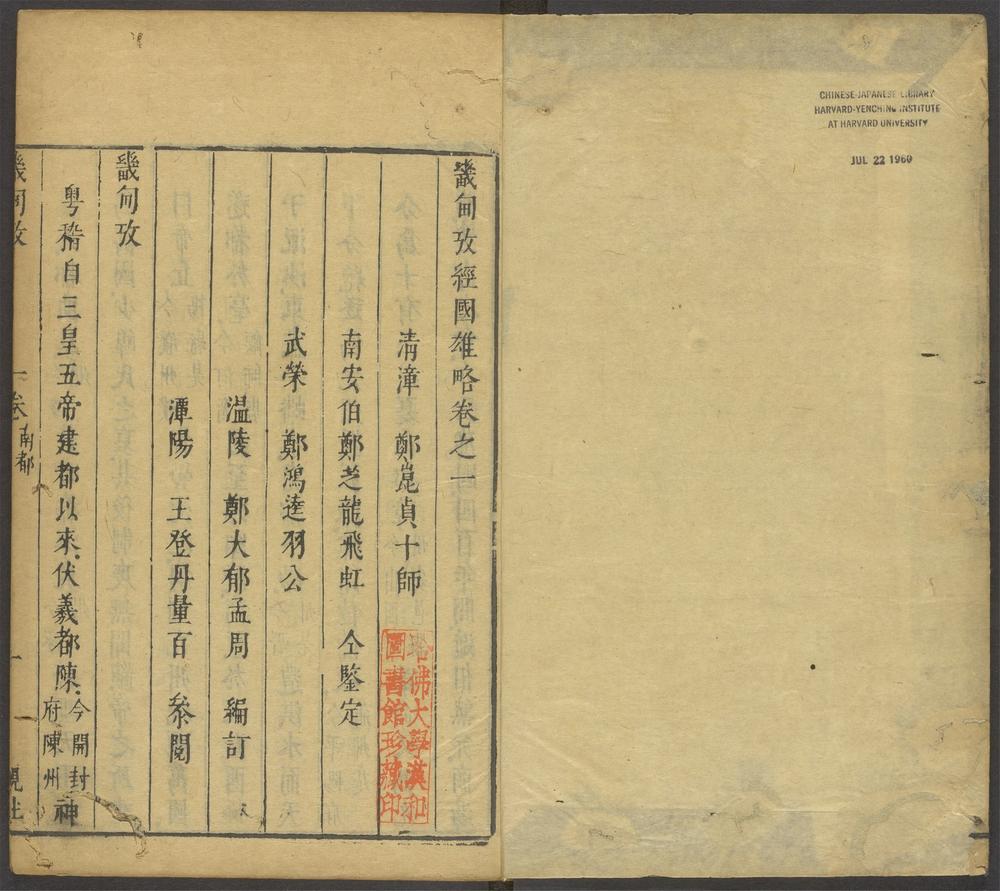 CHINESE-JAPANESE LIBRARY
HARVARD-YENCHING INSTITUTE
AT HARVARD UNIVERSITY
JUL 22 1960
畿甸攷經國雄略卷之一
清漳　鄭崑貞十師
南安伯鄭芝龍飛虹　仝鑒定
武榮　鄭鴻逵羽公
溫陵　鄭大郁孟周　編訂
潭陽　王登丹量百　叅閱
哈佛大學漢和
圖書館珍藏印
畿甸攷
粤稽自三皇五帝建都以來伏羲都陳今開封府陳州神
畿甸攷　卷一　南都　一　觀社